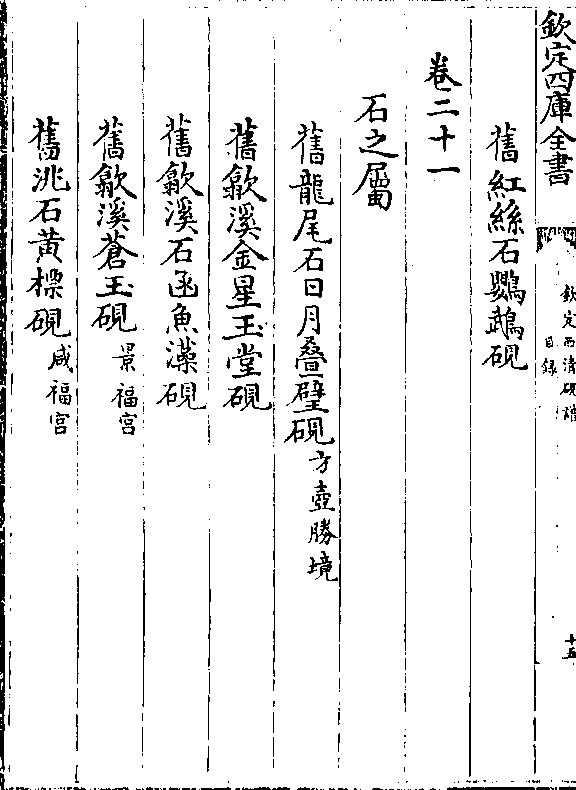 欽定四庫全書
欽定西清硯譜
目錄
十五
舊紅絲石鸚鵡硯
卷二十一
石之屬
舊龍尾石日月疊璧硯方壺勝境
舊歙溪金星玉堂硯
舊歙溪石函魚藻硯
舊歙溪蒼玉硯景福宮
舊洮石黃標硯咸福宮